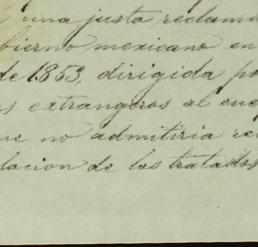 una justa reclama
bierno mexicano en
de 1853, dirigida po
s extrangeros al cue
ue no admitiria re
lacion de los tratados